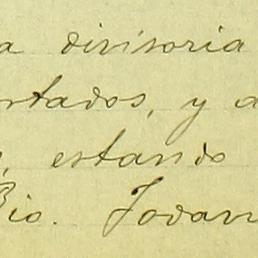 a divisoria
rtados, y a
, estando
Bio. Jovan